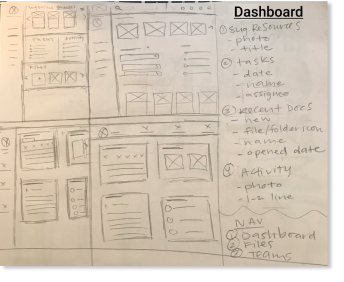 Dashboard
① Sug. Resources
- photo
- title
② tasks
- date
- name
- assignee
③ Recent Docs
- new
- file/folder icon
- name
- opened date
④ Activity
- photo
- 1-2 line
NAV
① Dashboard
② Files
③ Teams
Files